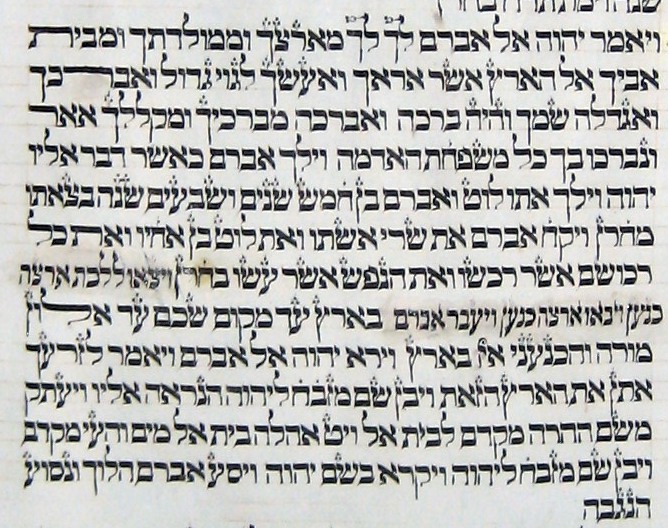 ויאמר יהוה אל אברם לך לך מארצך וממולדתך ומבית
אביך אל הארץ אשר אראך ואעשך לגוי גדול ואברכך
ואגדלה שמך והיה ברכה ואברכה מברכיך ומקללך אאר
ונברכו בך כל משפחת האדמה וילך אברם כאשר דבר אליו
יהוה וילך אתו לוט ואברם בן חמש שנים ושבעים שנה בצאתו
מחרן ויקח אברם את שרי אשתו ואת לוט בן אחיו ואת כל
רכושם אשר רכשו ואת הנפש אשר עשו בחרן ויצאו ללכת ארצה
כנען ויבאו ארצה כנען ויעבר אברם בארץ עד מקום שכם עד אלון
מורה והכנעני אז בארץ וירא יהוה אל אברם ויאמר לזרעך
אתן את הארץ הזאת ויבן שם מזבח ליהוה הנראה אליו ויעתק
משם ההרה מקדם לבית אל ויט אהלה בית אל מים והעי מקדם
ויבן שם מזבח ליהוה ויקרא בשם יהוה ויסע אברם הלוך ונסוע
הנגבה